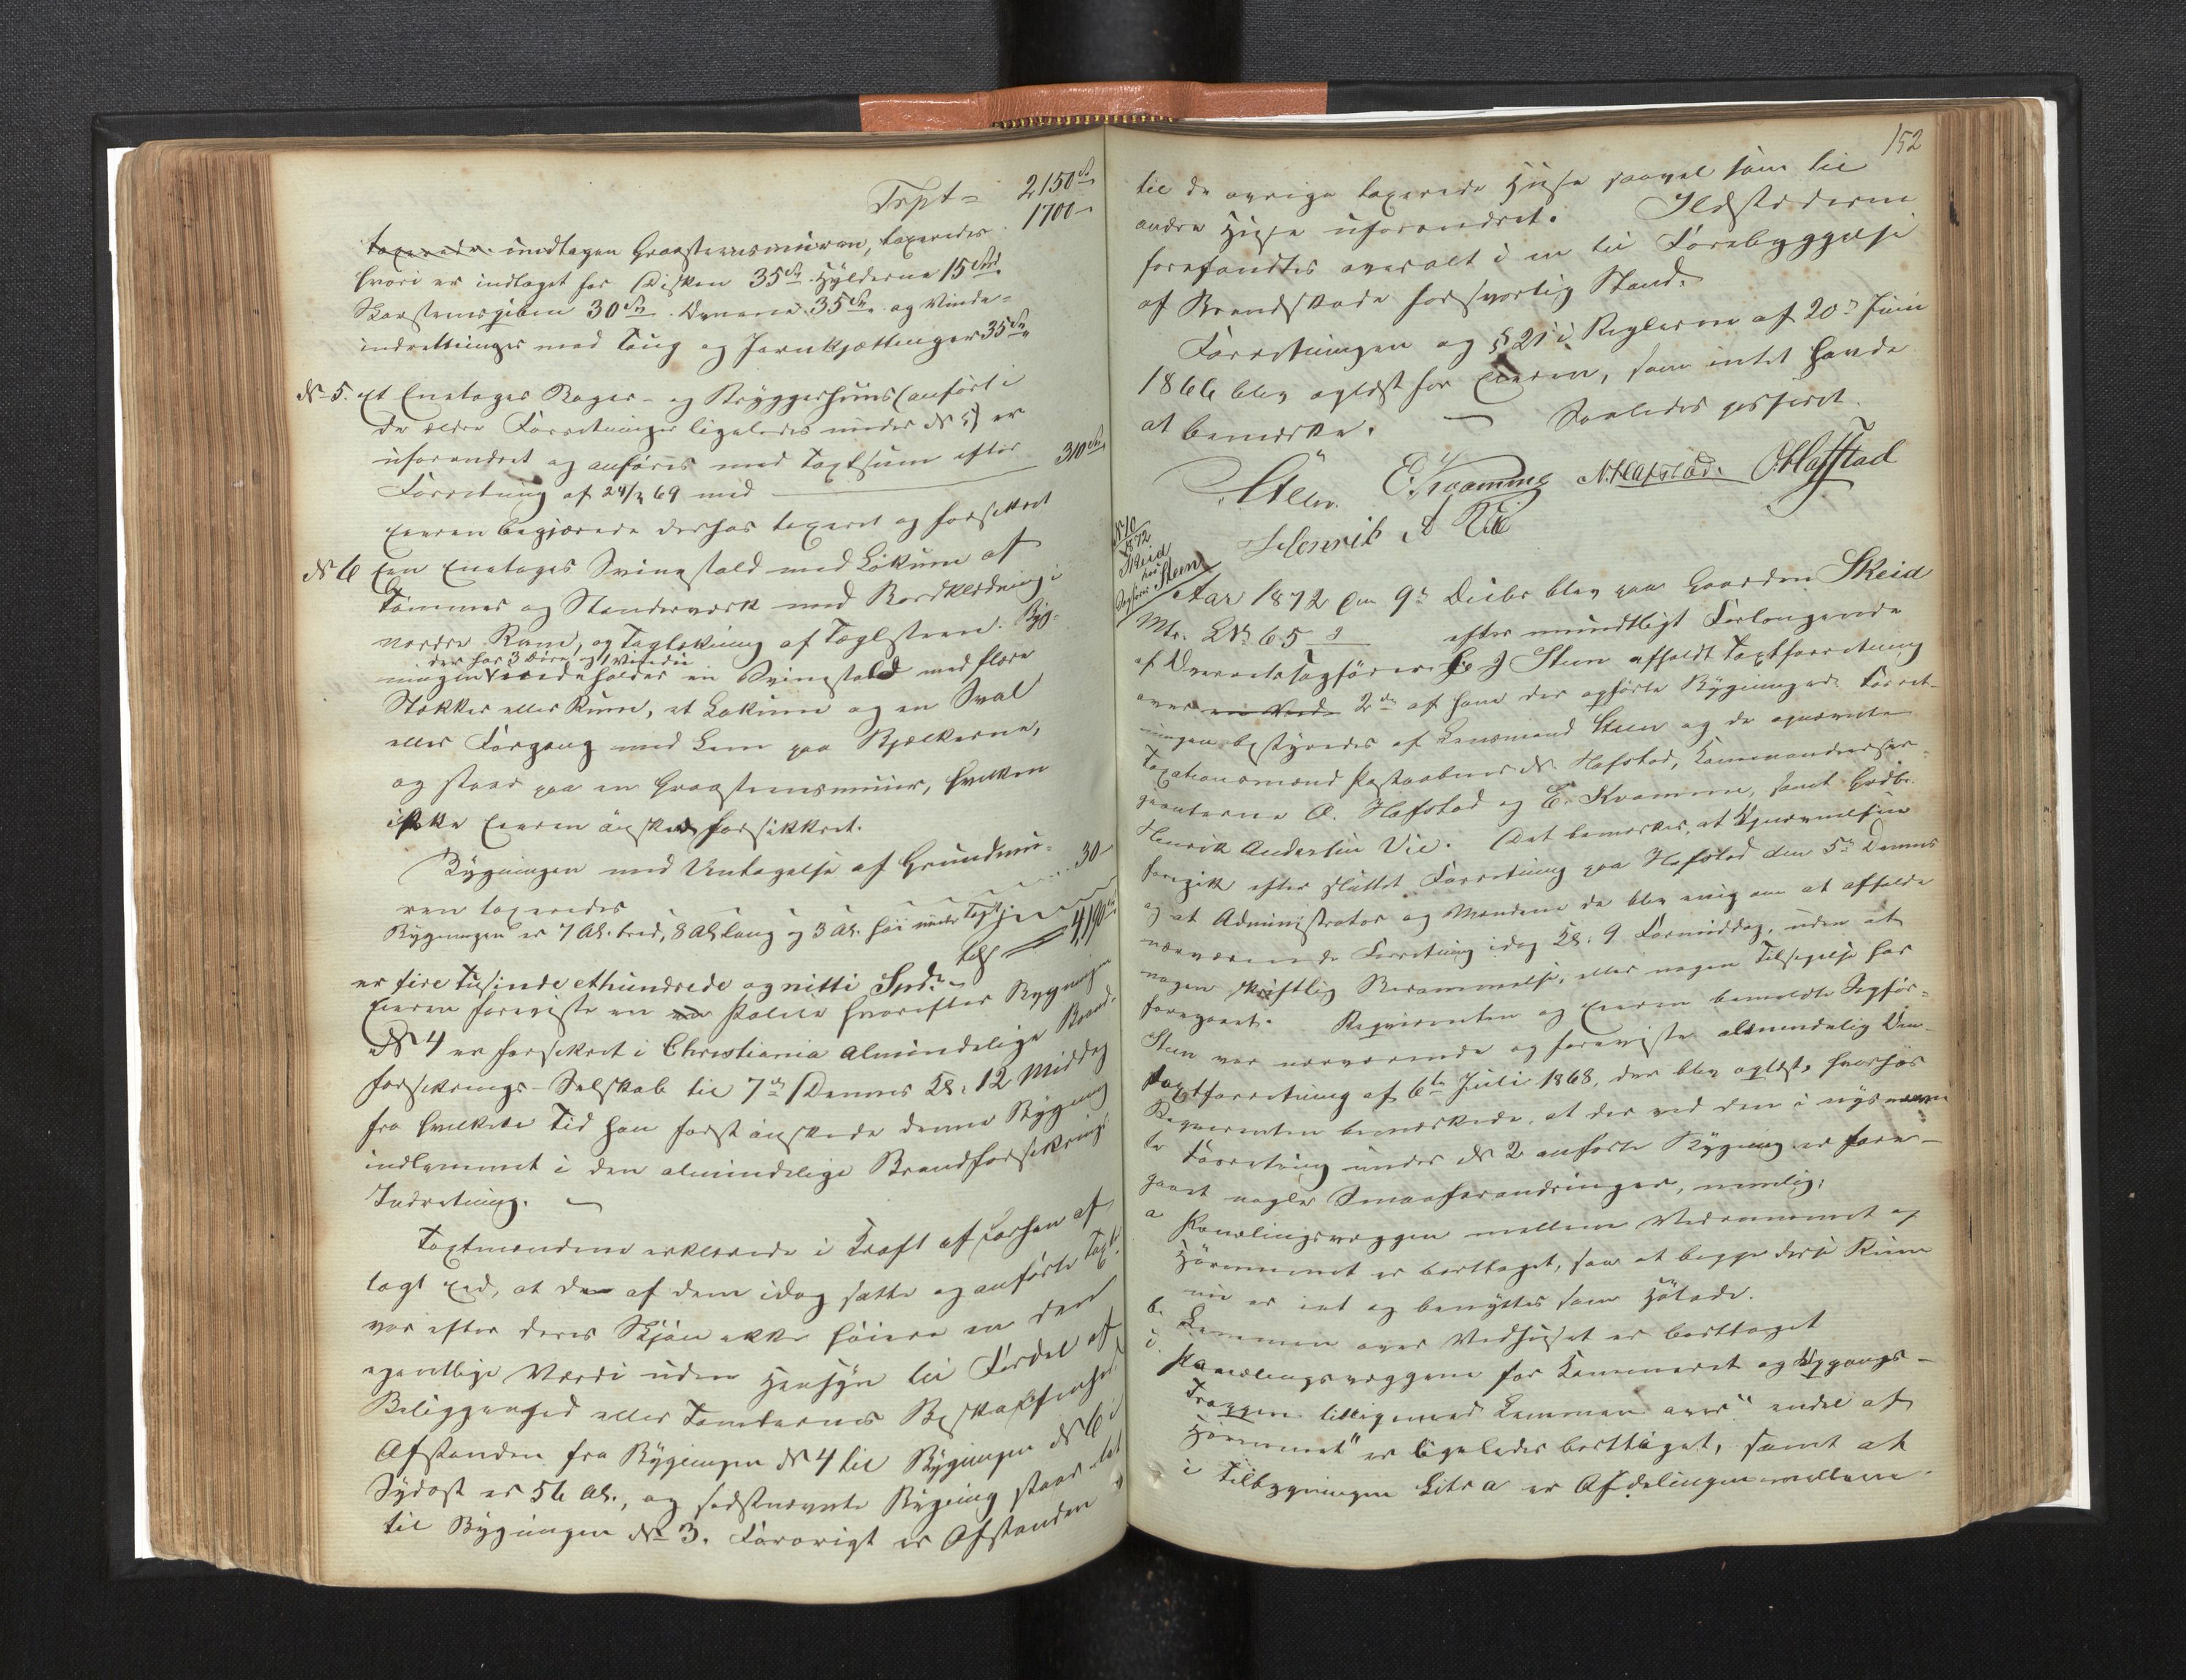 Trpt = 2150 Sp
taxerede indtagen Graasteensmuren, taxeredes 1700 -
hvori er indtaget for Disken 35 Sp Hylderne 15 Spd
Skorsteenspiben 30 Sp Ovnene 35 Sp og Vinde-
indretninger med Toug og Jernkjættinger 35 Sp
No 5. et Enetages Bager- og Bryggerhuus (anført i
de ældre Forretninger ligeledes under No 5) er
uforandret og anføres med Taxtsum efter
Forretning af 24/ 69 med 310 Sp
Eieren begjærede derhos taxeret og forsikret
No 6 Een Enetages Svinestald med Lokum af
Tømmer og Stenderverk med Bordklædning i
nordre Rum, og Taglækning af Taglsteen. Byg-
der har 3 Døre og 1 Vindue
ningen indeholder en Svinestald med flere
Stokker eller Rum, et Lokum og en Sval
eller Forgang med Lem paa Bjælkerne,
og staar paa en Graasteensmuur, hvilken
ikke Eieren ønsker forsikkret.
Bygningen med Undtagelse af Grundmu-
ren taxeredes 30 -
Bygningen er 7 Al. bred, 8 Al. lang og 3 Al. høi under Taget
tils 4,190
er fire tusinde ethundrede og nitti Spd.
Eieren foreviste en Police hvorefter Bygningen
No 4 er forsikret i Christiania almindelige Brand-
forsikrings-Selskab til 7de Dennes Kl. 12 Middag
fra hvilken Tid han først ønskede denne Bygning
indlemmet i den almindelige Brandforsikrings
Indretning. -
Taxtmændene erklærede i Kraft af forhen af-
lagt Eed, at den af dem idag satte og anførte Taxt
var efter deres Skjøn ikke høiere en den
egentlige Værdi uden Hensyn til Fordel af
Beliggenhed eller Tomternes Beskaffenhed
Afstanden fra Bygningen No 4 til Bygningen No 6 i
Sydost er 56 Al., og sidstnævnte Bygning staar tæt
til Bygningen No 3. Forøvrigt er Afstanden
152
til de øvrige taxerede Huse saavel som til
andre Huse uforandret. Ildstederne
forefandtes overalt i en til Forebyggelse
af Brandskade forsvarlig Stand.
Forretningen og § 21 i Reglerne af 20de Juni
1866 blev oplæst for Eieren, som intet havde
at bemærke. - Saaledes passeret.
Steen. E. Kvamme N. Hafstad. O. Hafstad
Henrik A Vie
No 10
1872
Skeid
hos
Sagfører Steen
Aar 1872 den 9de Decbr blev paa Gaarden Skeid
Mtr. L No 65 efter mundtligt Forlangende
af Overretssagfører J Steen afholdt Taxtforretning
over 2de af ham der opførte Bygninger. Forret-
ningen bestyredes af Lensmand Steen og de opnævnte
Taxationsmænd Postaabner N. Hafstad, Kommandeerser-
gianterne O. Hafstad og E. Kvamme, samt Grdbr.
Henrik Andersen Vie. Det bemærkes, at Opnævnelsen
foregik efter sluttet Forretning paa Hafstad den 5te Dennes
og at Administrator og Mændene da blev enig om at afholde
nærværende Forretning idag Kl. 9 Formiddag, uden at
nogen skriftlig Berammelse, eller nogen Tilsigelse har
foregaaet. Rekvirenten og Eieren bemeldte Sagfør-
Steen var nærværende og foreviste almindelig
Taxtforretning af 6te Juli 1868, der blev oplæst, hvorhos
Requirenten bemærkede, at der ved den i nysnævn-
te Forretning under No 2 anførte Bygning er fore-
gaaet nogle Smaaforandringer, nemlig:
a Panelingsvæggen mellem Vedrummet og
Hørummet er borttaget, saa at begge disse Rum
nu er eet og benyttes som Høladе.
b. Lemmen over Vedhuset er borttaget
c. Panelingsvæggene for Kammeret og Opgangs-
Trappen tilligemed Lemmen over "endel af
Hørummet" er ligeledes borttaget, samt at
i Tilbygningen Litr a er Afdelingen mellem